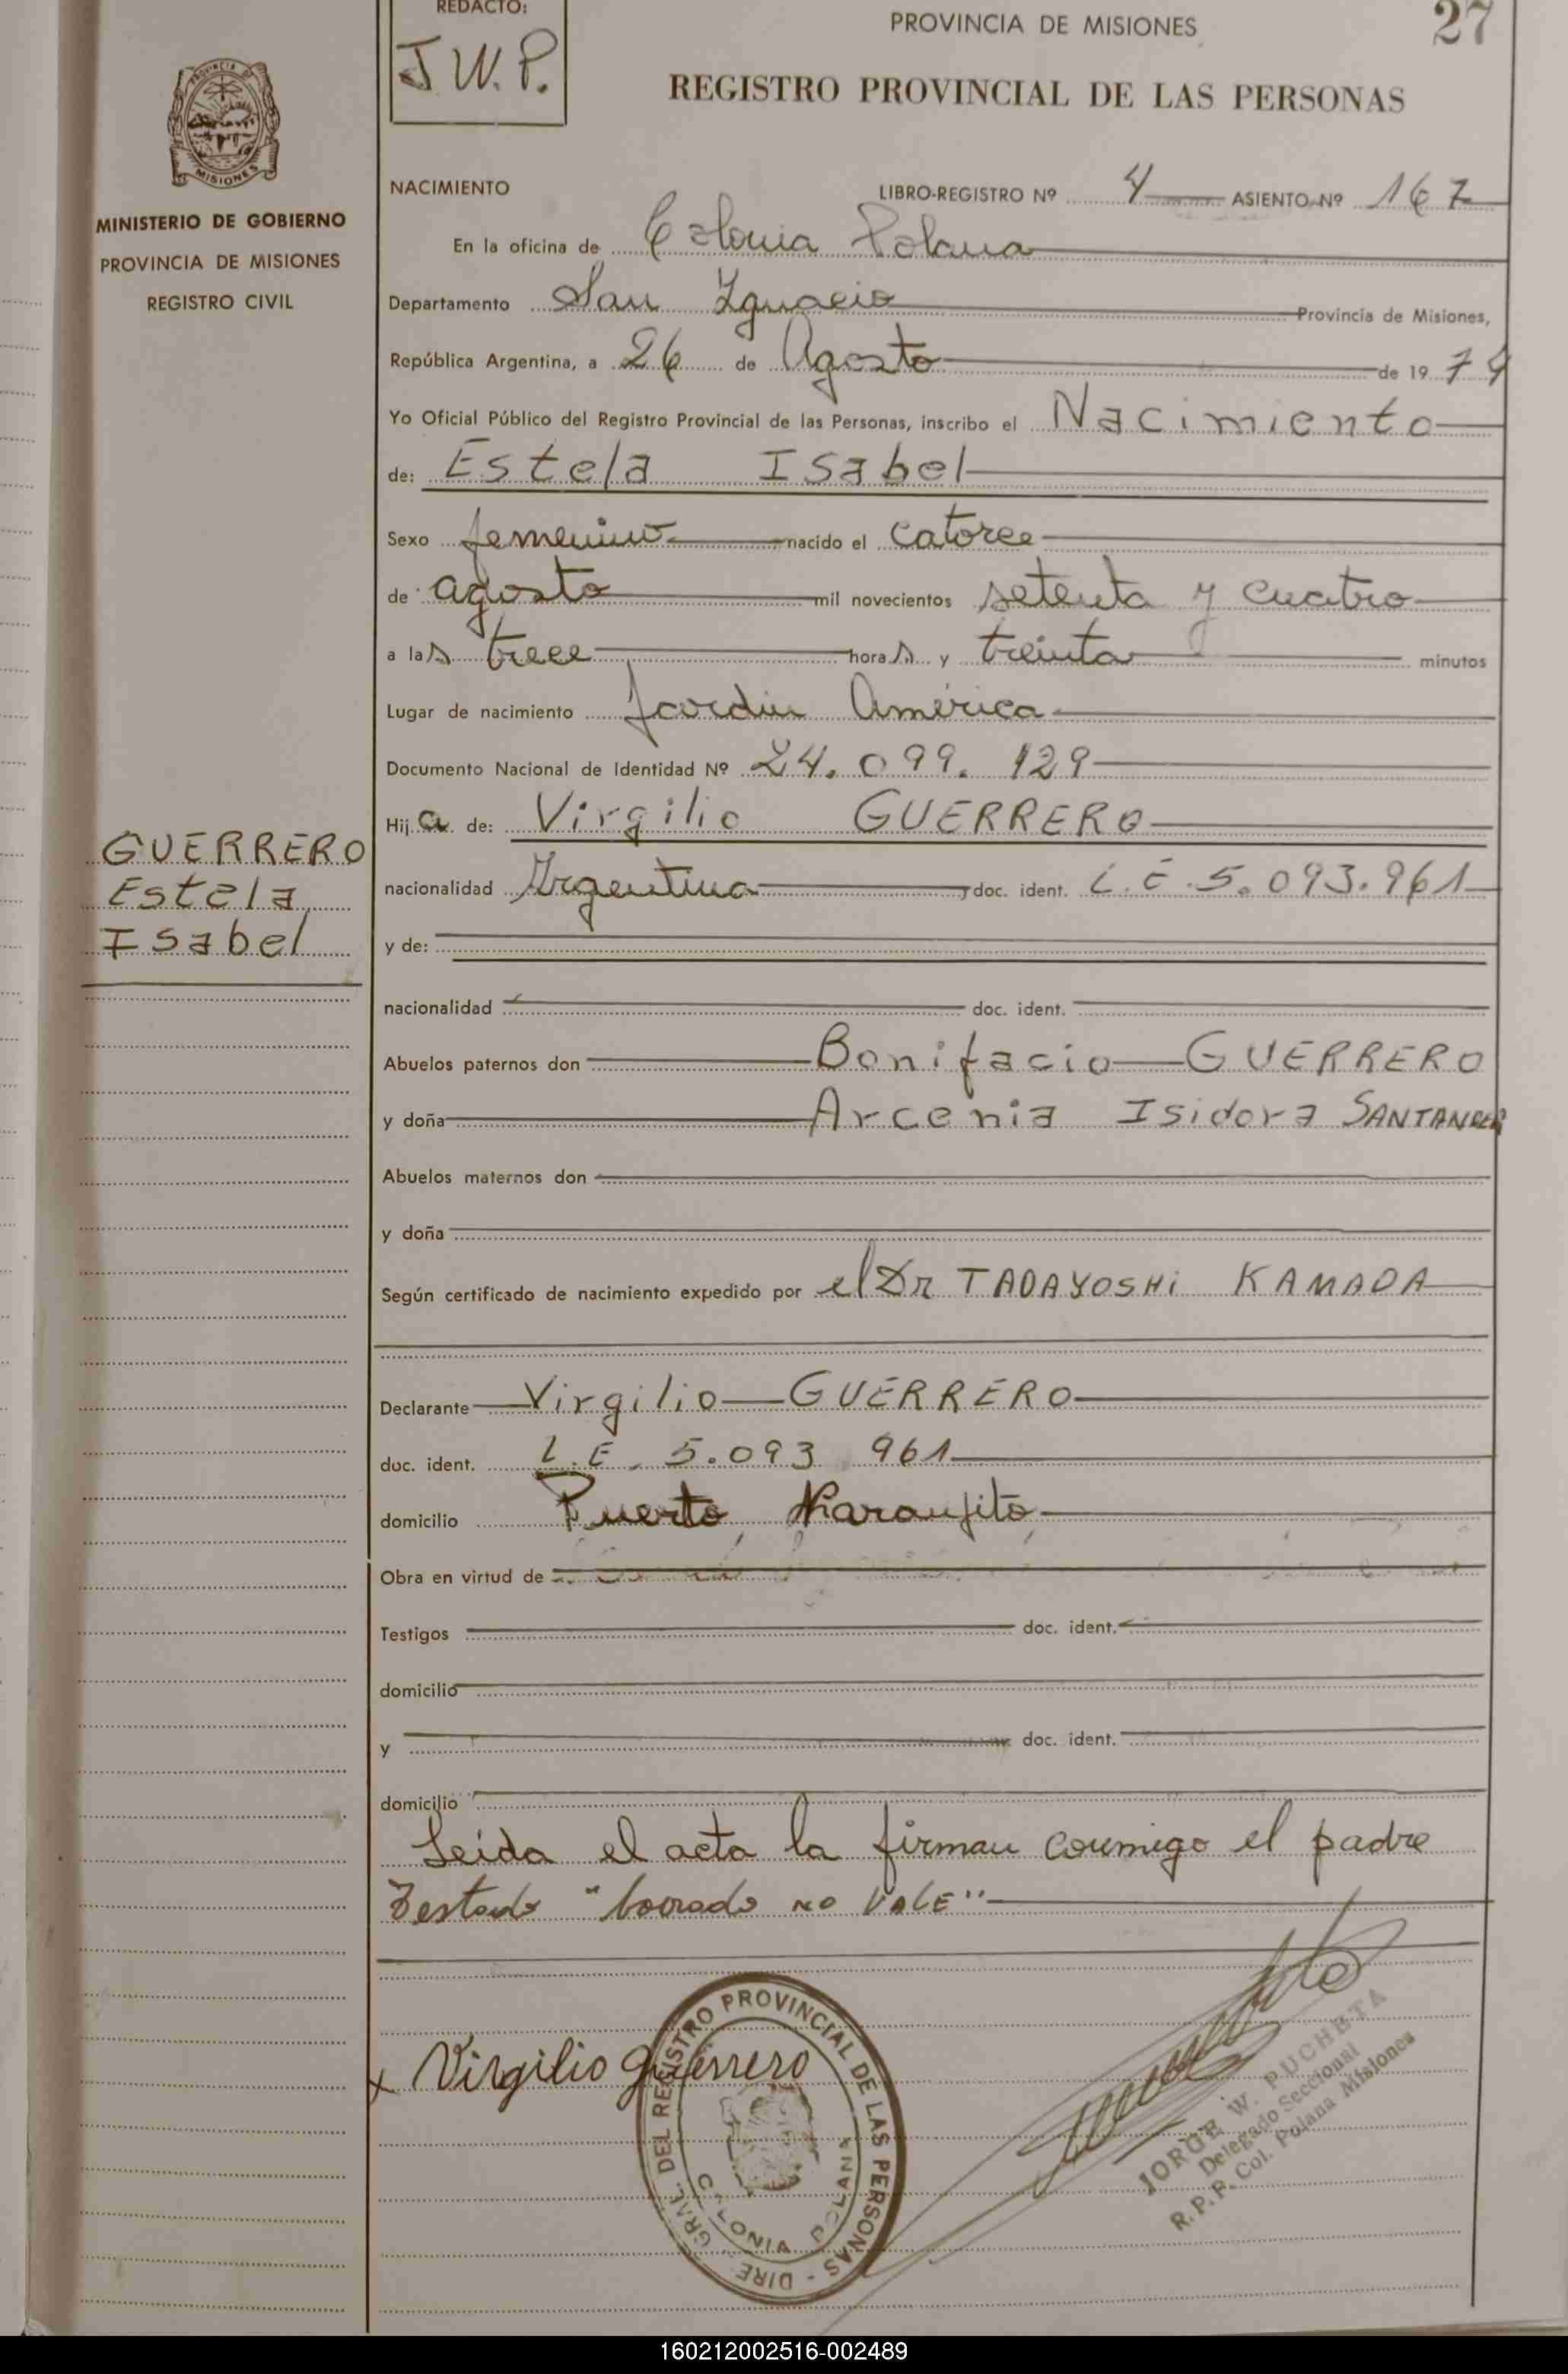 REDACTO:
J W. P.
PROVINCIA DE MISIONES
27
REGISTRO PROVINCIAL DE LAS PERSONAS
MISIONES
MINISTERIO DE GOBIERNO
PROVINCIA DE MISIONES
REGISTRO CIVIL
NACIMIENTO LIBRO-REGISTRO Nº 4 ASIENTO Nº 167
En la oficina de Colonia Polana
Departamento San Ignacio Provincia de Misiones,
República Argentina, a 26 de Agosto de 1974
Yo Oficial Público del Registro Provincial de las Personas, inscribo el Nacimiento
de: Estela Isabel
Sexo femenino nacido el catorce
de agosto mil novecientos setenta y cuatro
a las trece horas y treinta minutos
Lugar de nacimiento Jardin América
Documento Nacional de Identidad Nº 24.099.129
Hija de: Virgilio GUERRERO
GUERRERO
Estela
Isabel
nacionalidad Argentina doc. ident. L.E.5.093.961
y de:
nacionalidad doc. ident.
Abuelos paternos don Bonifacio GUERRERO
y doña Arcenia Isidora SANTANDER
Abuelos maternos don
y doña
Según certificado de nacimiento expedido por el Dr TADAYOSHi KAMADA
Declarante Virgilio GUERRERO
doc. ident. L.E. 5.093 961
domicilio Puerto Naranjito
Obra en virtud de
Testigos doc. ident.
domicilio
y doc. ident.
domicilio
Leida el acta la firman conmigo el padre
Testado "borrado no VALE"
x Virgilio guerrero
DIRE GRAL. DEL REGISTRO PROVINCIAL DE LAS PERSONAS -
COLONIA POLANA
JORGE W. PUCHETA
Delegado Seccional
R.P.P. Col. Polana Misiones
160212002516-002489